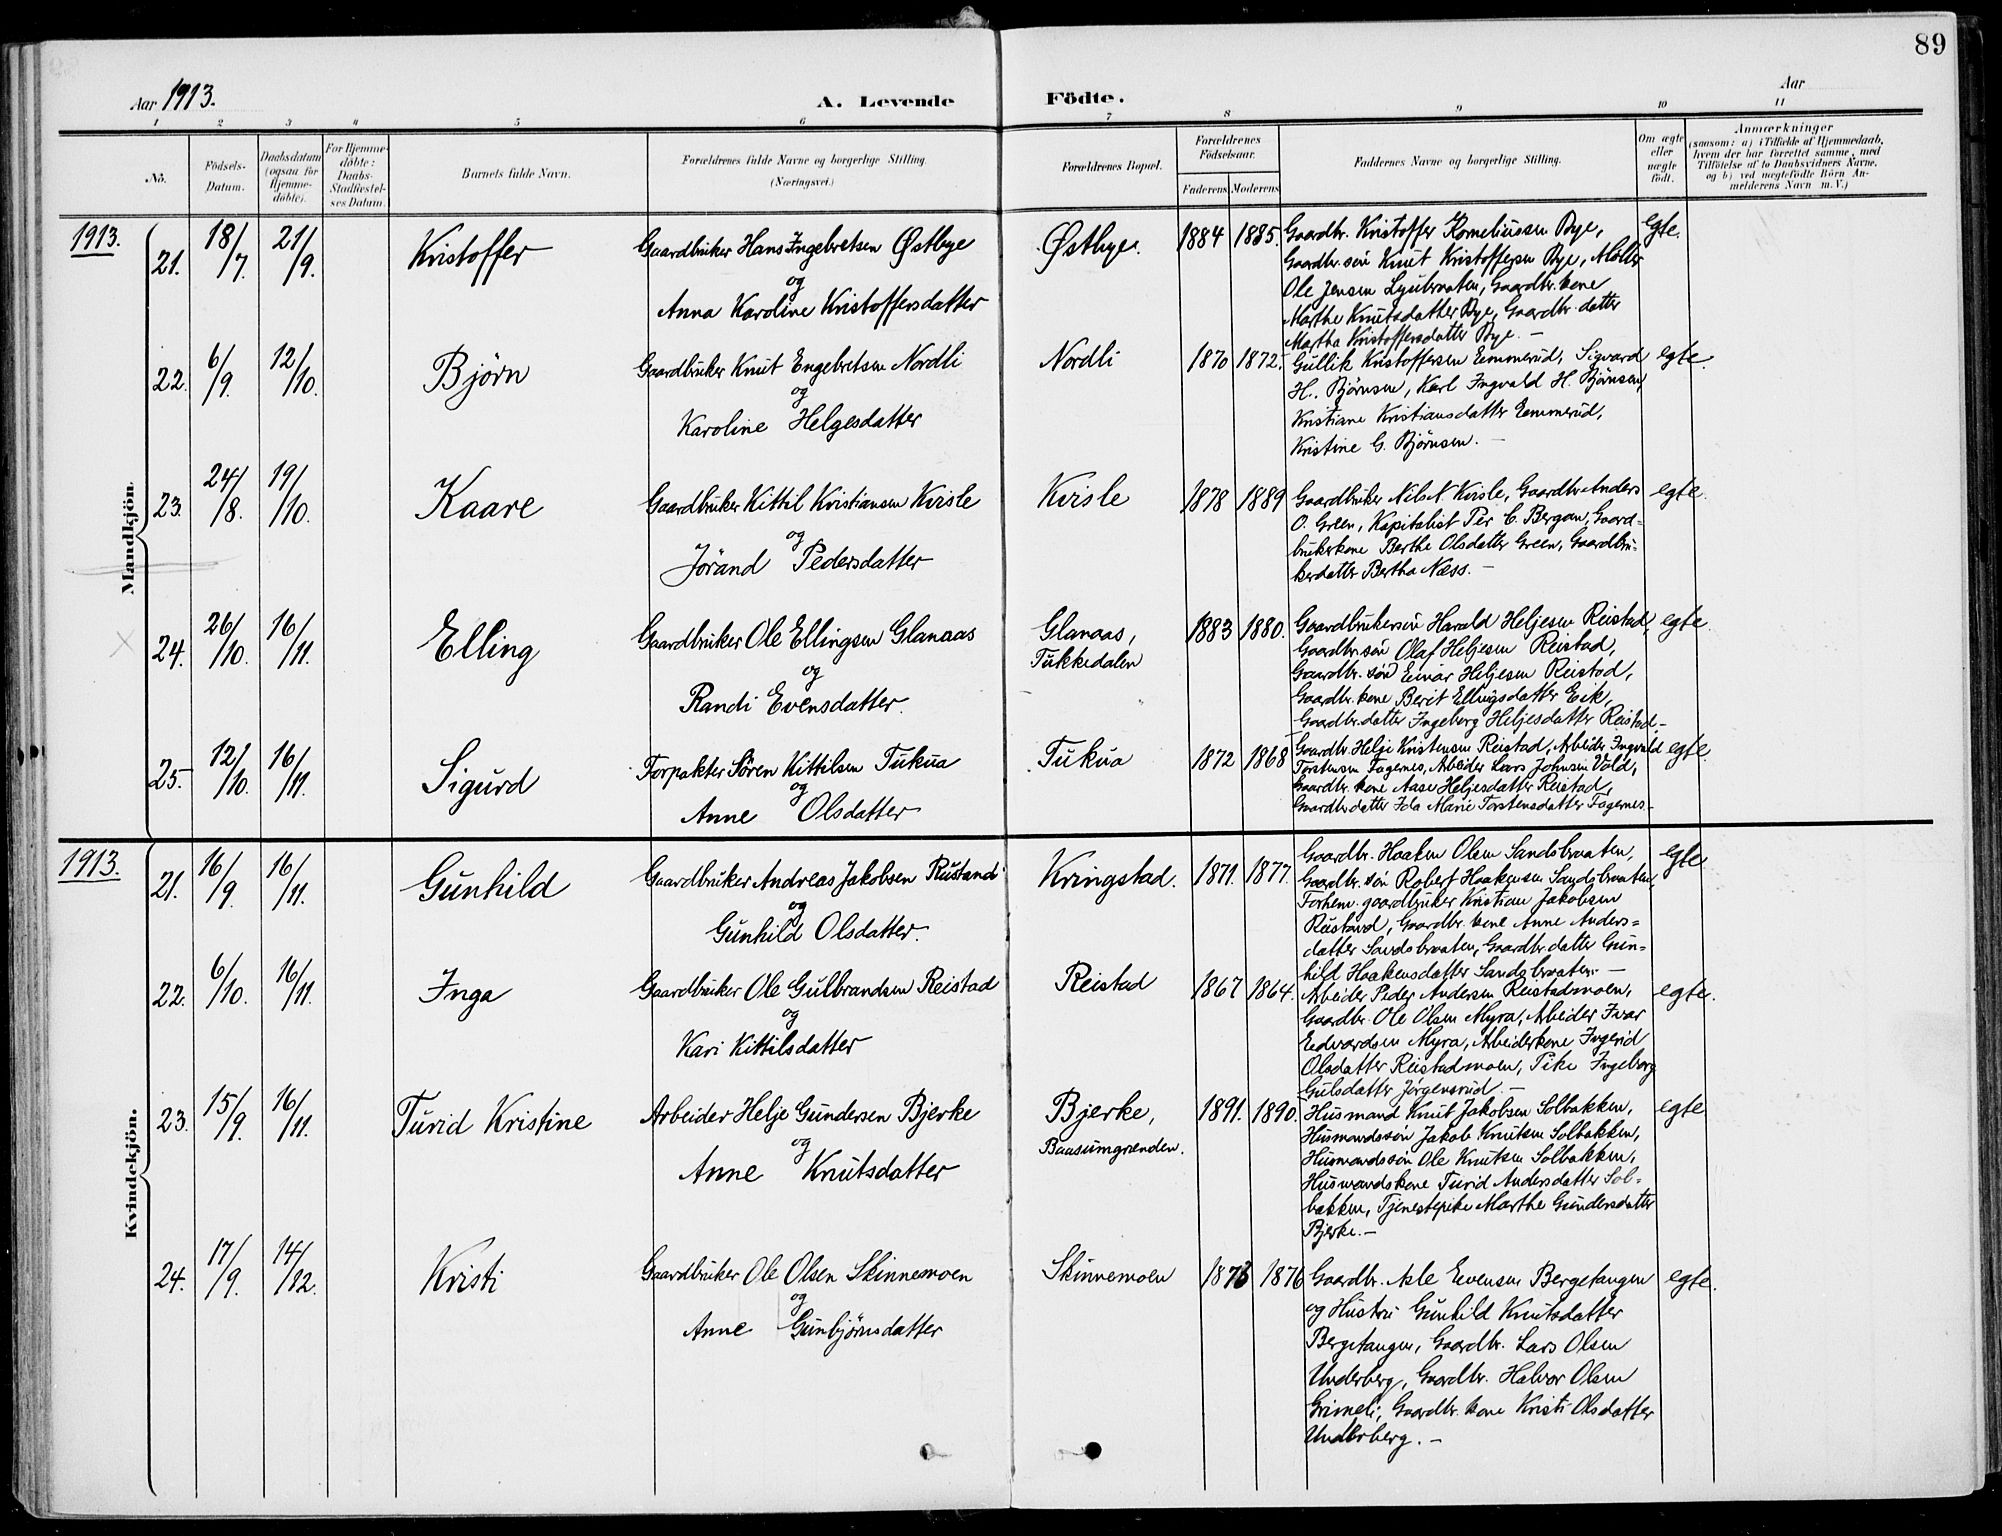 89
Aar 1913.
A. Levende Födte.
Aar
1 2 3 4 5 6 7 8 9 10 11
No.
Födsels-Datum.
Daabsdatum (ogsaa for Hjemme-döbte).
For Hjemme-döbte: Daabs-Stadfæstel-ses Datum.
Barnets fulde Navn.
Forældrenes fulde Navne og borgerlige Stilling.
(Næringsvei.)
Forældrenes Bopæl.
Forældrenes Födselsaar.
Faderens Moderens
Faddernes Navne og borgerlige Stilling.
Om ægte eller uægte födt.
Anmærkninger
(saasom: a) i Tilfælde af Hjemmedaab,
hvem der har forrettet samme, med
Tilföielse af to Daabsvidners Navne,
og b) ved uægtefödte Börn An-
melderens Navn m. V.)
Mandkjön.
1913.
21. 18/7. 21/9. Kristoffer
Gaardbruker Hans Ingebretsen Østbye
og
Anna Karoline Kristoffersdatter
Østbye. 1884 1885.
Gaardbr. Kristoffer Korneliussen Bye,
Gaardbr. søn Knut Kristoffersen Bye, Møller
Ole Jensen Lyubraaten, Gaardbr. kone
Marthe Knutsdatter Bye, Gaardbr. datter
Martha Kristoffersdatter Bye. –
Egte.
22. 6/9. 12/10. Bjørn
Gaardbruker Knut Engebretsen Nordli
og
Karoline Helgesdatter
Nordli 1870 1872.
Gullik Kristoffersen Emmerud, Sigvard
H. Bjørnsen, Karl Ingvald H. Bjørnsen,
Kristiane Kristiansdatter Emmerud,
Kristine G. Bjørnsen. –
egte.
23. 24/8. 19/10. Kaare
Gaardbruker Kittil Kristiansen Kvisle
og
Jørand Pedersdatter
Kvisle 1878 1889
Gaardbruker Nils N. Kvisle, Gaardbr. Anders
O. Green, Kapitalist Per C. Bergan, Gaard-
brukerkone Berthe Olsdatter Green, Gaardbru-
kerdatter Bertha Næss. –
egte.
24. 26/10. 16/11. Elling
Gaardbruker Ole Ellingsen Glanaas
og
Randi Evensdatter.
Glanaas,
Tukkedalen
1883 1880.
Gaardbrukersøn Harald Heljesen Reistad,
Gaardbr. søn Olaf Heljesen Reistad,
Gaardbr. søn Einar Heljesen Reistad,
Gaardbr. kone Berit Ellingsdatter Eik,
Gaardbr. datter Ingeborg Heljesdatter Reistad –
egte.
25. 12/10. 16/11. Sigurd
Forpakter Søren Kittilsen Tukua
og
Anne Olsdatter
Tukua 1872 1868
Gaardbr. Helje Kristensen Reistad, Arbeider Ingvald
Torstensen Fagernes, Arbeider Lars Johnsen Vold,
Gaardbr. kone Aase Heljesdatter Reistad,
Gaardbr. datter Ida Marie Torstensdatter Fagernes –
egte.
Kvindekjön.
1913.
21. 16/9. 16/11. Gunhild
Gaardbruker Andreas Jakobsen Rustand
og
Gunhild Olsdatter.
Kringstad. 1871. 1877.
Gaardbr. Haaken Olsen Sandsbraaten,
Gaardbr. søn Robert Haakensen Sandsbraaten,
Forhen. gaardbruker Kristian Jakobsen
Rustand, Gaardbr. kone Anne Anders-
datter Sandsbraaten, Gaardbr. datter Gun-
hild Haakensdatter Sandsbraaten. –
egte
22. 6/10. 16/11. Inga
Gaardbruker Ole Gulbrandsen Reistad
og
Kari Kittilsdatter
Reistad 1867 1864.
Arbeider Peder Andersen Reistadmoen,
Gaardbr. Ole Olsen Myra, Arbeider Ivar
Edvardsen Myra, Arbeiderkone Ingerid
Olsdatter Reistadmoen, Pike Ingeborg
Gulsdatter Jørgensrud. –
egte.
23. 15/9. 16/11. Turid Kristine
Arbeider Helje Gundersen Bjerke
og
Anne Knutsdatter
Bjerke,
Baasumgrænden.
1891. 1890.
Husmand Knut Jakobsen Solbakken,
Husmandssøn Jakob Knutsen Solbakken,
Husmandssøn Ole Knutsen Solbakken,
Husmandskone Turid Andersdatter Sol-
bakken, Tjenestepike Marthe Gundersdatter
Bjerke. –
egte
24. 17/9. 14/12. Kristi
Gaardbruker Ole Olsen Skinnemoen
og
Anne Gunbjørnsdatter
Skinnemoen 1873 1876
Gaardbr. Asle Evensen Bergetangen
og Hustru Gunhild Knutsdatter
Bergetangen, Gaardbr. Lars Olsen
Underberg, Gaardbr. Halvor Olsen
Grimeli, Gaardbr. kone Kristi Olsdatter
Underberg. –
egte.